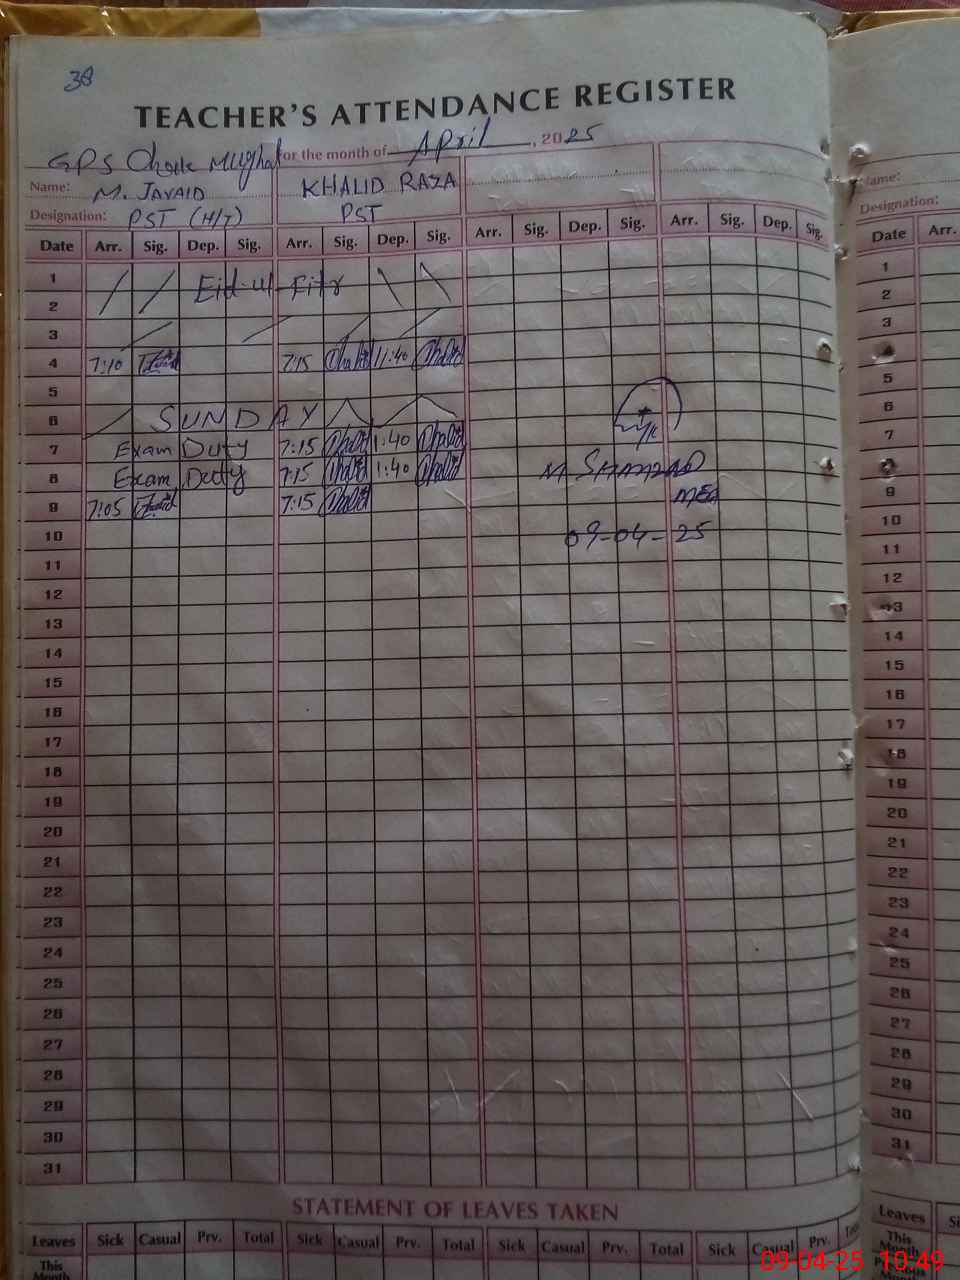 38
TEACHER'S ATTENDANCE REGISTER
GPS Chak Mughal for the month of April, 2025
Name: M. JAVAID KHALID RAZA
Designation: PST (H/T) PST
Date Arr. Sig. Dep. Sig. Arr. Sig. Dep. Sig. Arr. Sig. Dep. Sig. Arr. Sig. Dep. Sig.
1 Eid-ul-Fitr
2
3
4 7:10 7:15 Khalid 11:40 Khalid
5
6 SUNDAY
7 Exam Duty 7:15 Khalid 1:40 Khalid
8 Exam Duty 7:15 Khalid 1:40 Khalid
M SHAHZAD
9 7:05 7:15 Khalid
MEA
10
09-04-25
11
12
13
14
15
16
17
18
19
20
21
22
23
24
25
26
27
28
29
30
31
STATEMENT OF LEAVES TAKEN
Leaves Sick Casual Prv. Total Sick Casual Prv. Total Sick Casual Prv. Total Sick Casual Prv. Total
This Month
Name:
Designation:
Date Arr.
1
2
3
4
5
6
7
8
9
10
11
12
13
14
15
16
17
18
19
20
21
22
23
24
25
26
27
28
29
30
31
Leaves
This
09-04-25 10:49